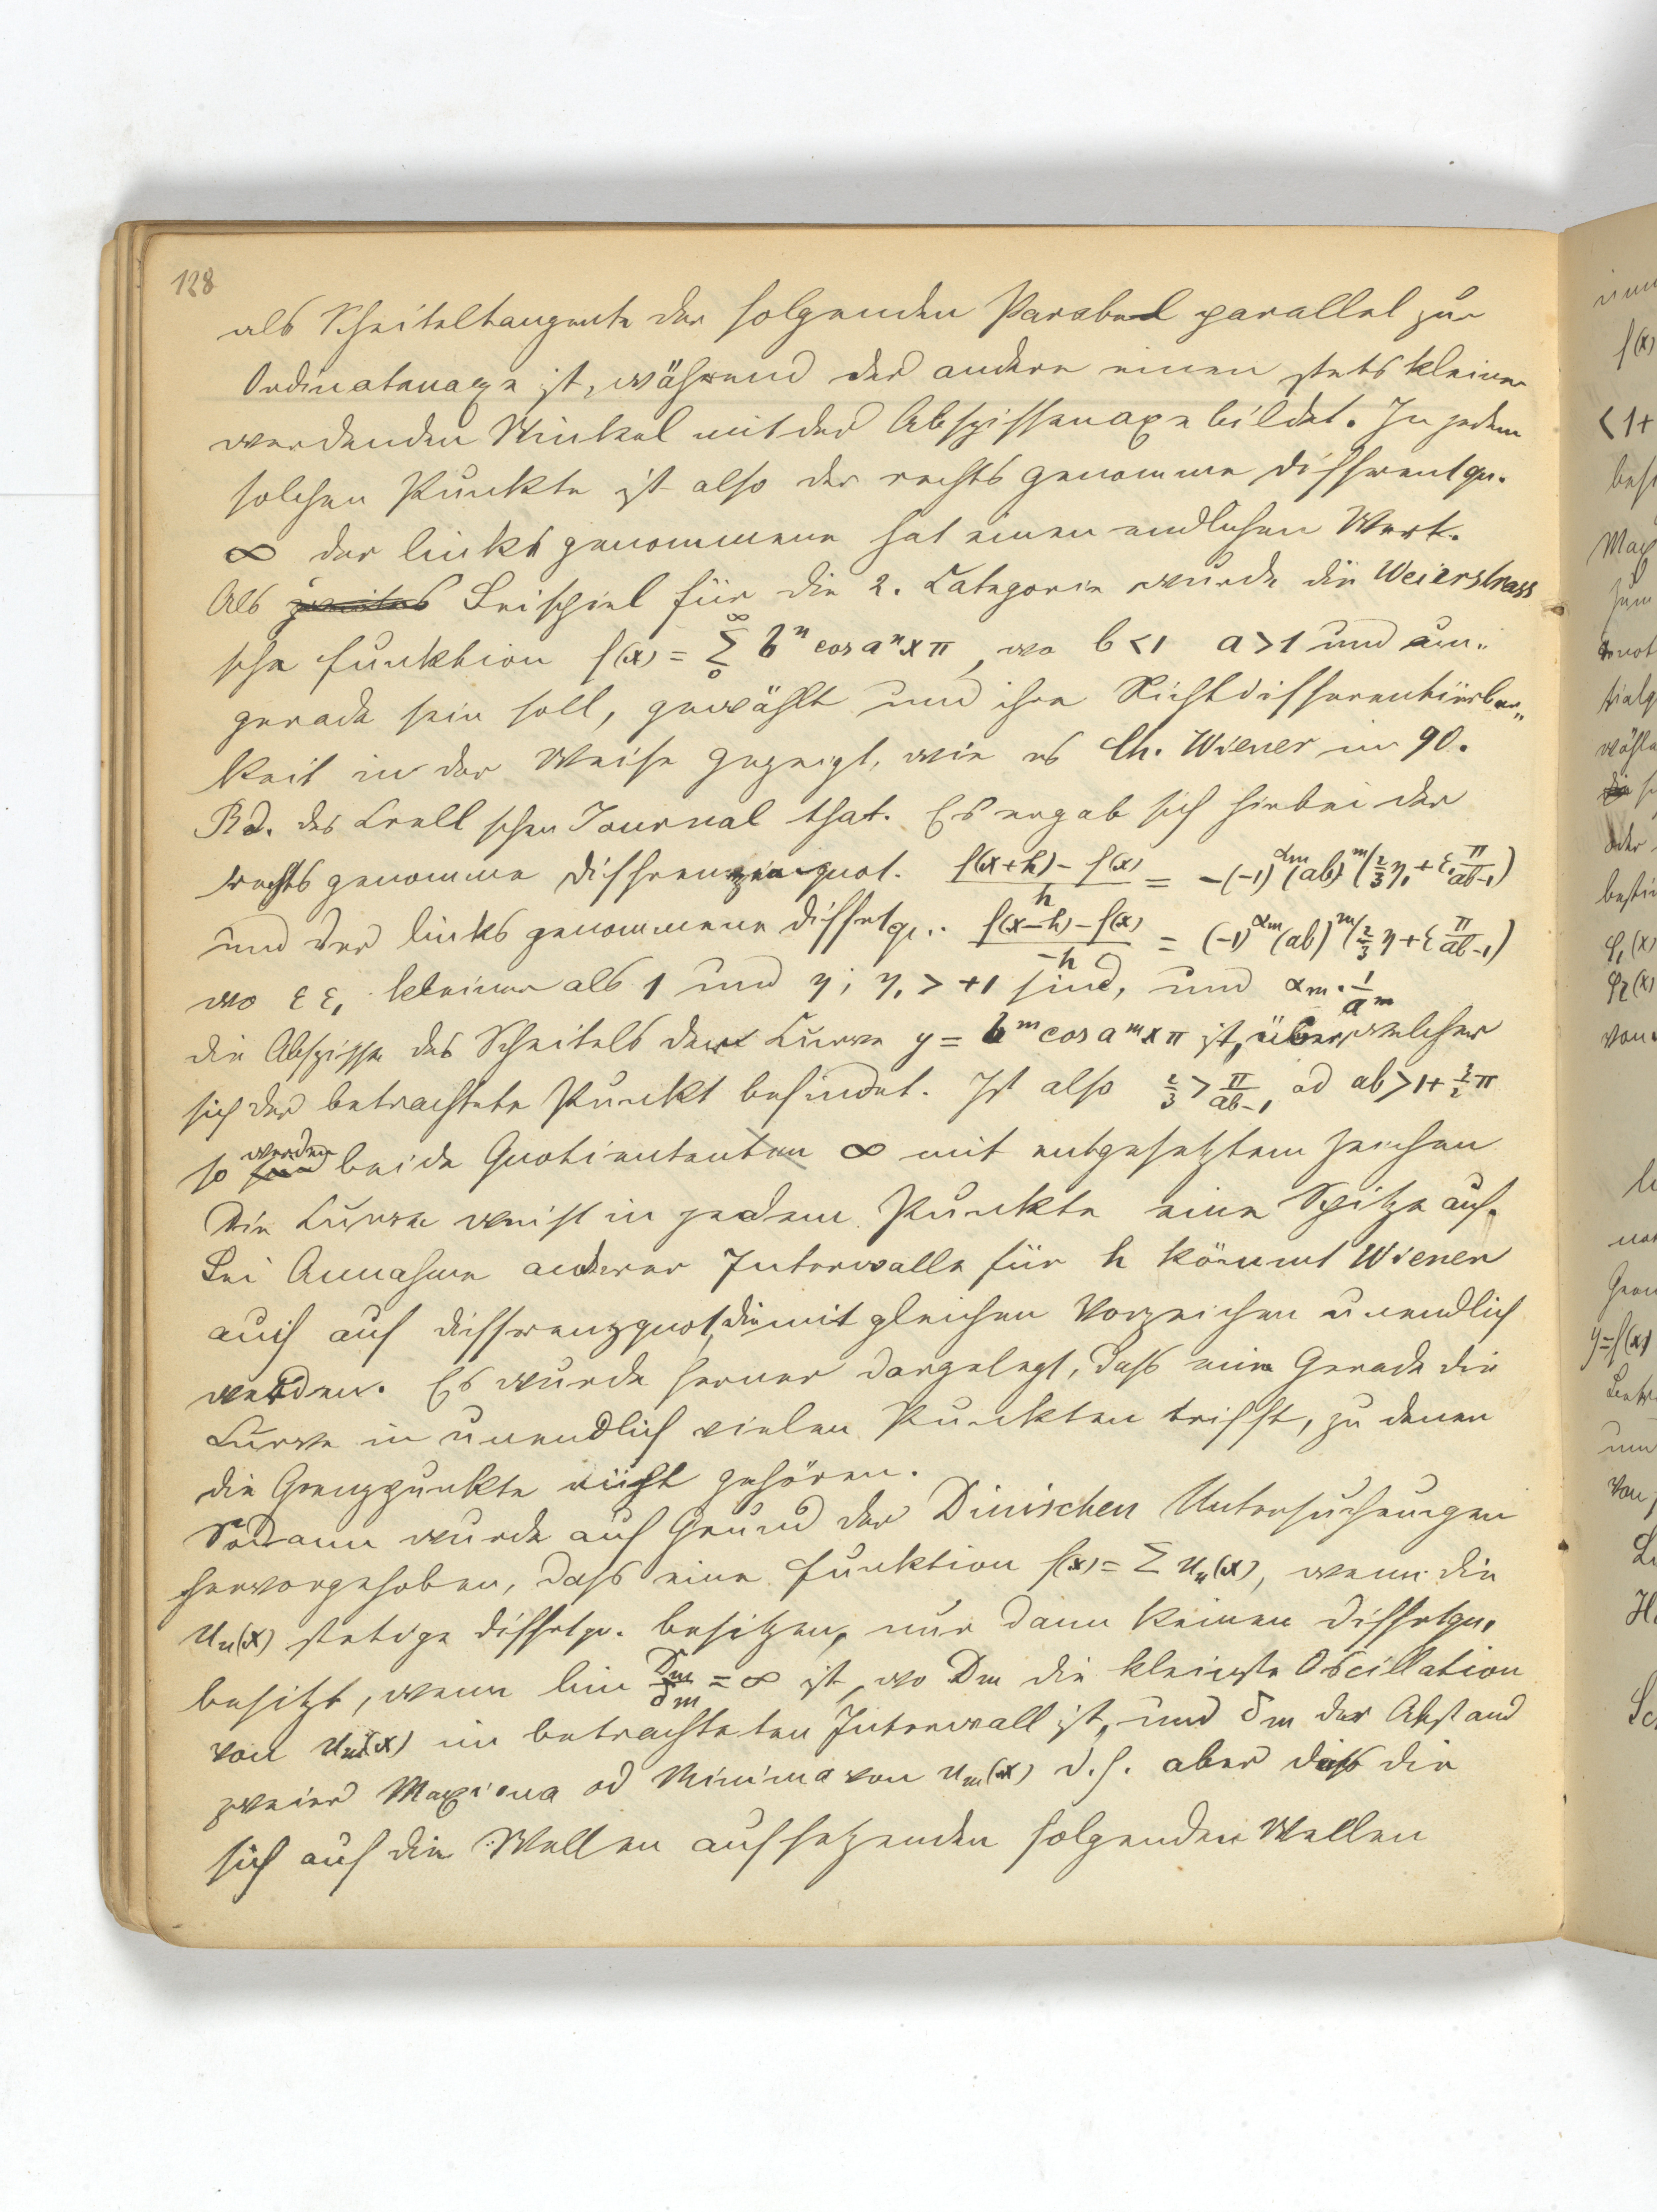 128
als Scheiteltangente der folgenden Parabel parallel zur
Ordinatenaxe ist, während der andere einen stets kleiner
werdenden Winkel mit der Abscissenaxe bildet. In jedem
solchen Punkte ist also der rechts genommene Differentqu.
∞ der links genommene hat einen endlichen Wert.
Als Beispiel für die 2. Categorie wurde die Weierstrass
sche Funktion f(x) = ∞ Σ 0 bⁿ cos aⁿxπ, wo b<1 a>1 und un„
gerade sein soll, gewählt und ihre Nichtdifferentiirbar„
keit in der Weise gezeigt, wie es Ch. Wiener im 90.
Bd. des Crell schen Journal that. Es ergab sich hiebei der
rechts genommene Differenzenquot. (f(x+h) – f(x))/h = -(-1)^αm (ab)^m (2/3 η₁ + ε₁ π/(ab-1))
und der links genommene Diffetqu.. (f(x-h) – f(x))/-h = (-1)^αm (ab)^m (2/3 η + ε π/(ab-1))
wo ε ε₁ kleiner als 1 und η; η₁ > +1 sind, und αm · 1/a^m
die Abscisse des Scheitels der Curve y = b^m cos a^m xπ ist, über welcher
sich der betrachtete Punkt befindet. Ist also 2/3 > π/(ab-1) od ab > 1 + 3/2 π
so werden beide Quotienten ∞ mit entgesetztem Zeichen
Die Curve weist in jedem Punkte eine Spitze auf.
Bei Annahme anderer Intervalle für h kömmt Wiener
auch auf Differenzquot, die mit gleichen Vorzeichen unendlich
werden. Es wurde ferner dargelegt, daß eine Gerade die
Curve in unendlich vielen Punkten trifft, zu denen
die Grenzpunkte nicht gehören.
Sodann wurde auf Grund der Dinischen Untersuchungen
hervorgehoben, daß eine Funktion f(x) = Σ uₙ(x), wenn die
uₙ(x) stetige Diffetqu. besitzen, nur dann keinen Diffetqu.
besitzt, wenn lim Dm/δm = ∞ ist, wo Dm die kleinste Oscillation
von um(x) im betrachteten Intervall ist, und δm der Abstand
zweier Maxima od Minima von um(x) d.h. aber daß die
sich auf die Wellen aufsetzenden folgenden Wellen